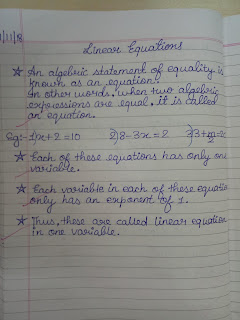 1/11/8
Linear Equations
★ An algebric statement of equality is
known as an equation.
In other words. when two algebric
expressions are equal. it is called
an equation.
Eg:- 1) x+2=10 2) 8-3x=2 3) 3+
★ Each of these equations has only one
variable.
★ Each variable in each of these equatio
only has an exponent of 1.
★ Thus, these are called linear equation
in one variable.